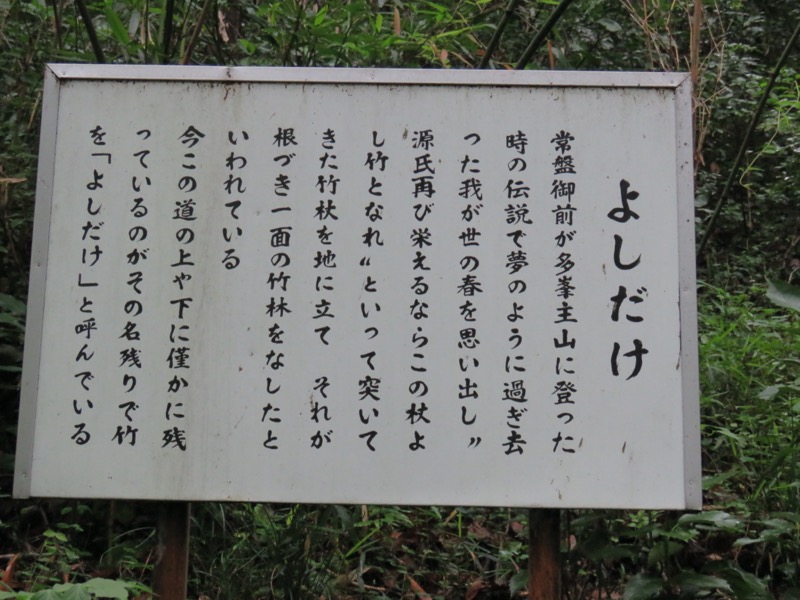 よしだけ
常盤御前が多峯主山に登った
時の伝説で夢のように過ぎ去
った我が世の春を思い出し〃
源氏再び栄えるならこの杖よ
し竹となれ〃といって突いて
きた竹杖を地に立て　それが
根づき一面の竹林をなしたと
いわれている
今この道の上や下に僅かに残
っているのがその名残りで竹
を「よしだけ」と呼んでいる